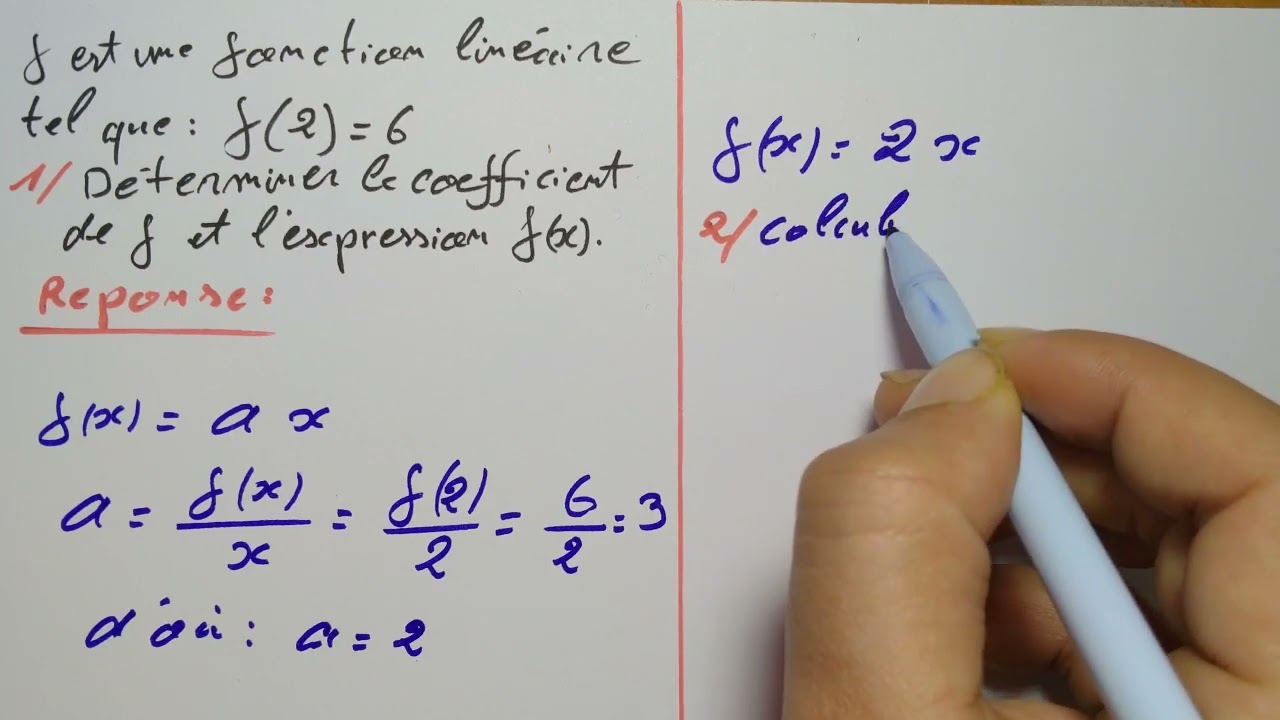 f est une fonction linéaire
tel que : f(2) = 6
1/ Déterminer le coefficient
de f et l'expression f(x).
Reponse :
f(x) = a x
a = f(x)/x = f(2)/2 = 6/2 = 3
d'où : a = 2
f(x) = 2 x
2/ calcul